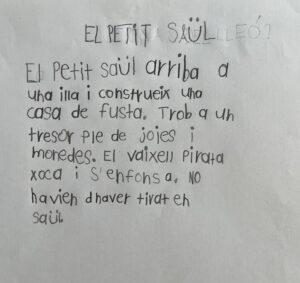 EL PETIT SAÜL LLEÓ?
El Petit saül arriba a
una illa i construeix una
casa de fusta. Trob a un
tresor ple de joies i
monedes. El vaixell Pirata
xoca i s'enfonsa. NO
havien dhaver tirat en
saül